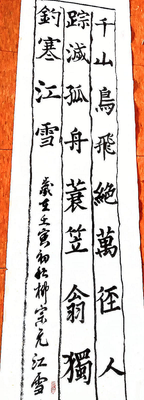 千山鳥飛絶萬径人
踪滅孤舟蓑笠翁獨
釣寒江雪 歲在壬寅初秋柳宗元江雪